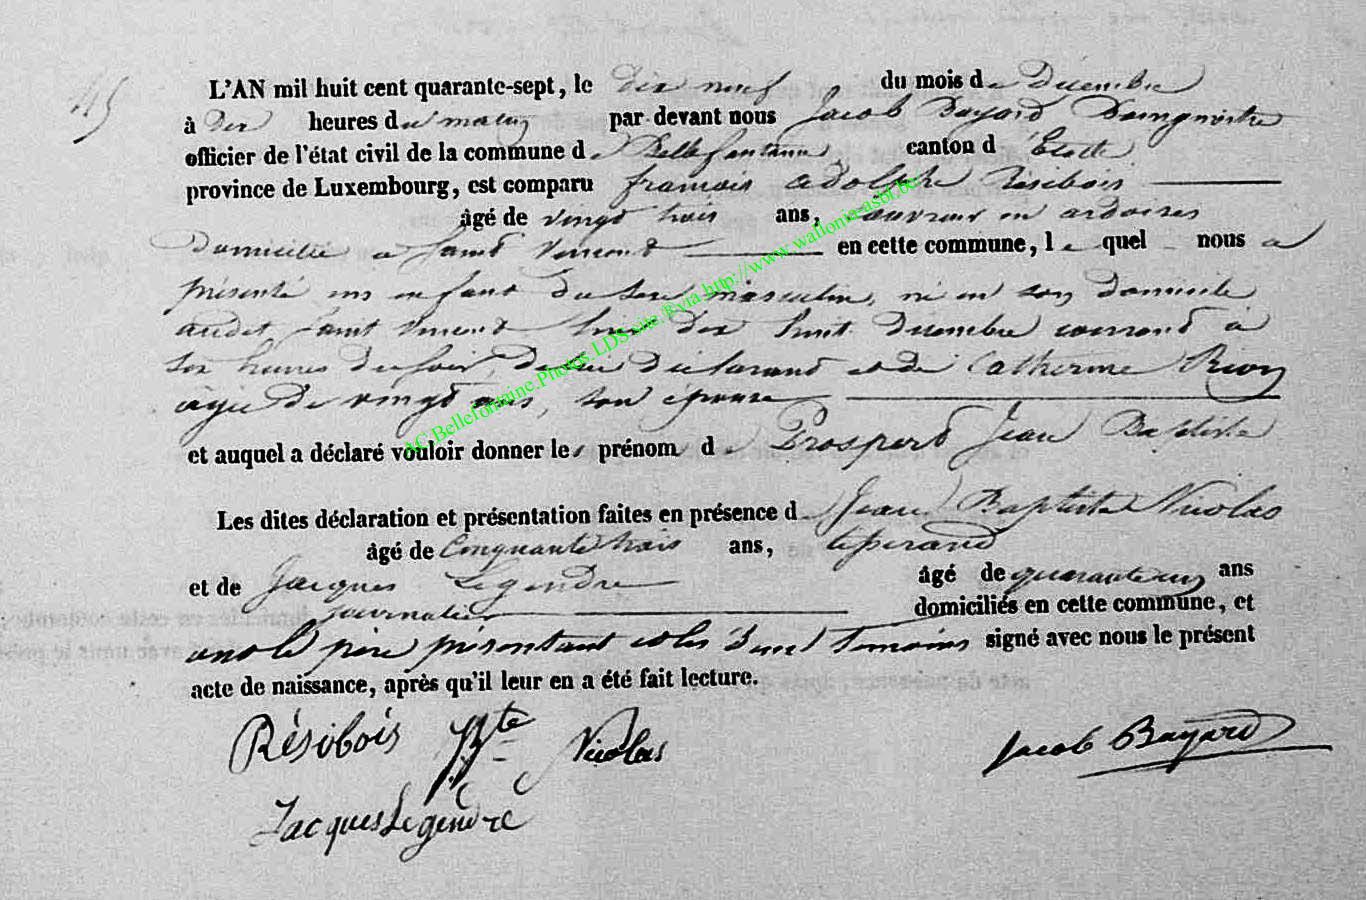 45
L'AN mil huit cent quarante-sept, le dix neuf du mois de Décembre
à dix heures du matin par devant nous Jacob Bayard Bourgmestre
officier de l'état civil de la commune de Bellefontaine, canton d'Etalle
province de Luxembourg, est comparu francois adolphe Résibois
âgé de vingt trois ans, ouvreur en ardoises
Domicilié a Saint Vincent en cette commune, lequel nous a
présenté un enfant du sexe masculin, né en son domicile
audit Saint Vincent hier dix huit décembre courant à
six heures du soir, de lui déclarant et de Catherine
agée de vingt ans, son épouse
et auquel a déclaré vouloir donner les prénoms de Prosperd Jean Baptiste
Les dites déclaration et présentation faites en présence de Jean Baptiste Nicolas
âgé de Cinquante trois ans, tisserand
et de Jacques Legendre âgé de quarante un ans
journalier domiciliés en cette commune, et
ont le père présentant et les deux temoins signé avec nous le présent
acte de naissance, après qu'il leur en a été fait lecture.
Résibois Bte Nicolas Jacob Bayard
Jacques Legendre
AC Bellefontaine.Photos.LDS site.fr via http://www.wallonia-asbl.be/